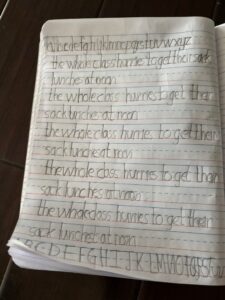 abcdefghijklmnopqrstuvwxyz
the whole class hurries to get their sack
lunches at noon
the whole class hurries to get their
sack lunches at noon
the whole class hurries to get their
sack lunches at noon
the whole class hurries to get their
sack lunches at noon
the whole class hurries to get their
sack lunches at noon
B C D E F G H I J K L M N O P Q R S T U V